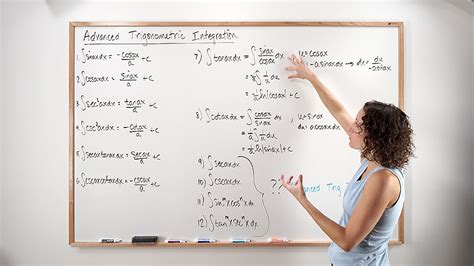 Advanced Trigonometric Integration
1. ∫sinax dx = -cosax/a + C
2. ∫cosax dx = sinax/a + C
3. ∫sec²ax dx = tanax/a + C
4. ∫csc²ax dx = -cotax/a + C
5. ∫secax tanax dx = secax/a + C
6. ∫cscax cotax dx = -cscax/a + C
7) ∫tanax dx = ∫ sinax/cosax dx , u = cosax
du = -a sinax dx → dx = du/-a sinax
= -1/a ∫ 1/u du
= -1/a ln|cosax| + C
8) ∫cotax dx = ∫ cosax/sinax dx , u = sinax
du = a cosax dx
= 1/a ∫ 1/u du
= 1/a ln|sinax| + C
9) ∫secax dx
10) ∫cscax dx
11) ∫sinᵐx cosⁿx dx
12) ∫tanᵐx secⁿx dx
?? Advanced Trig